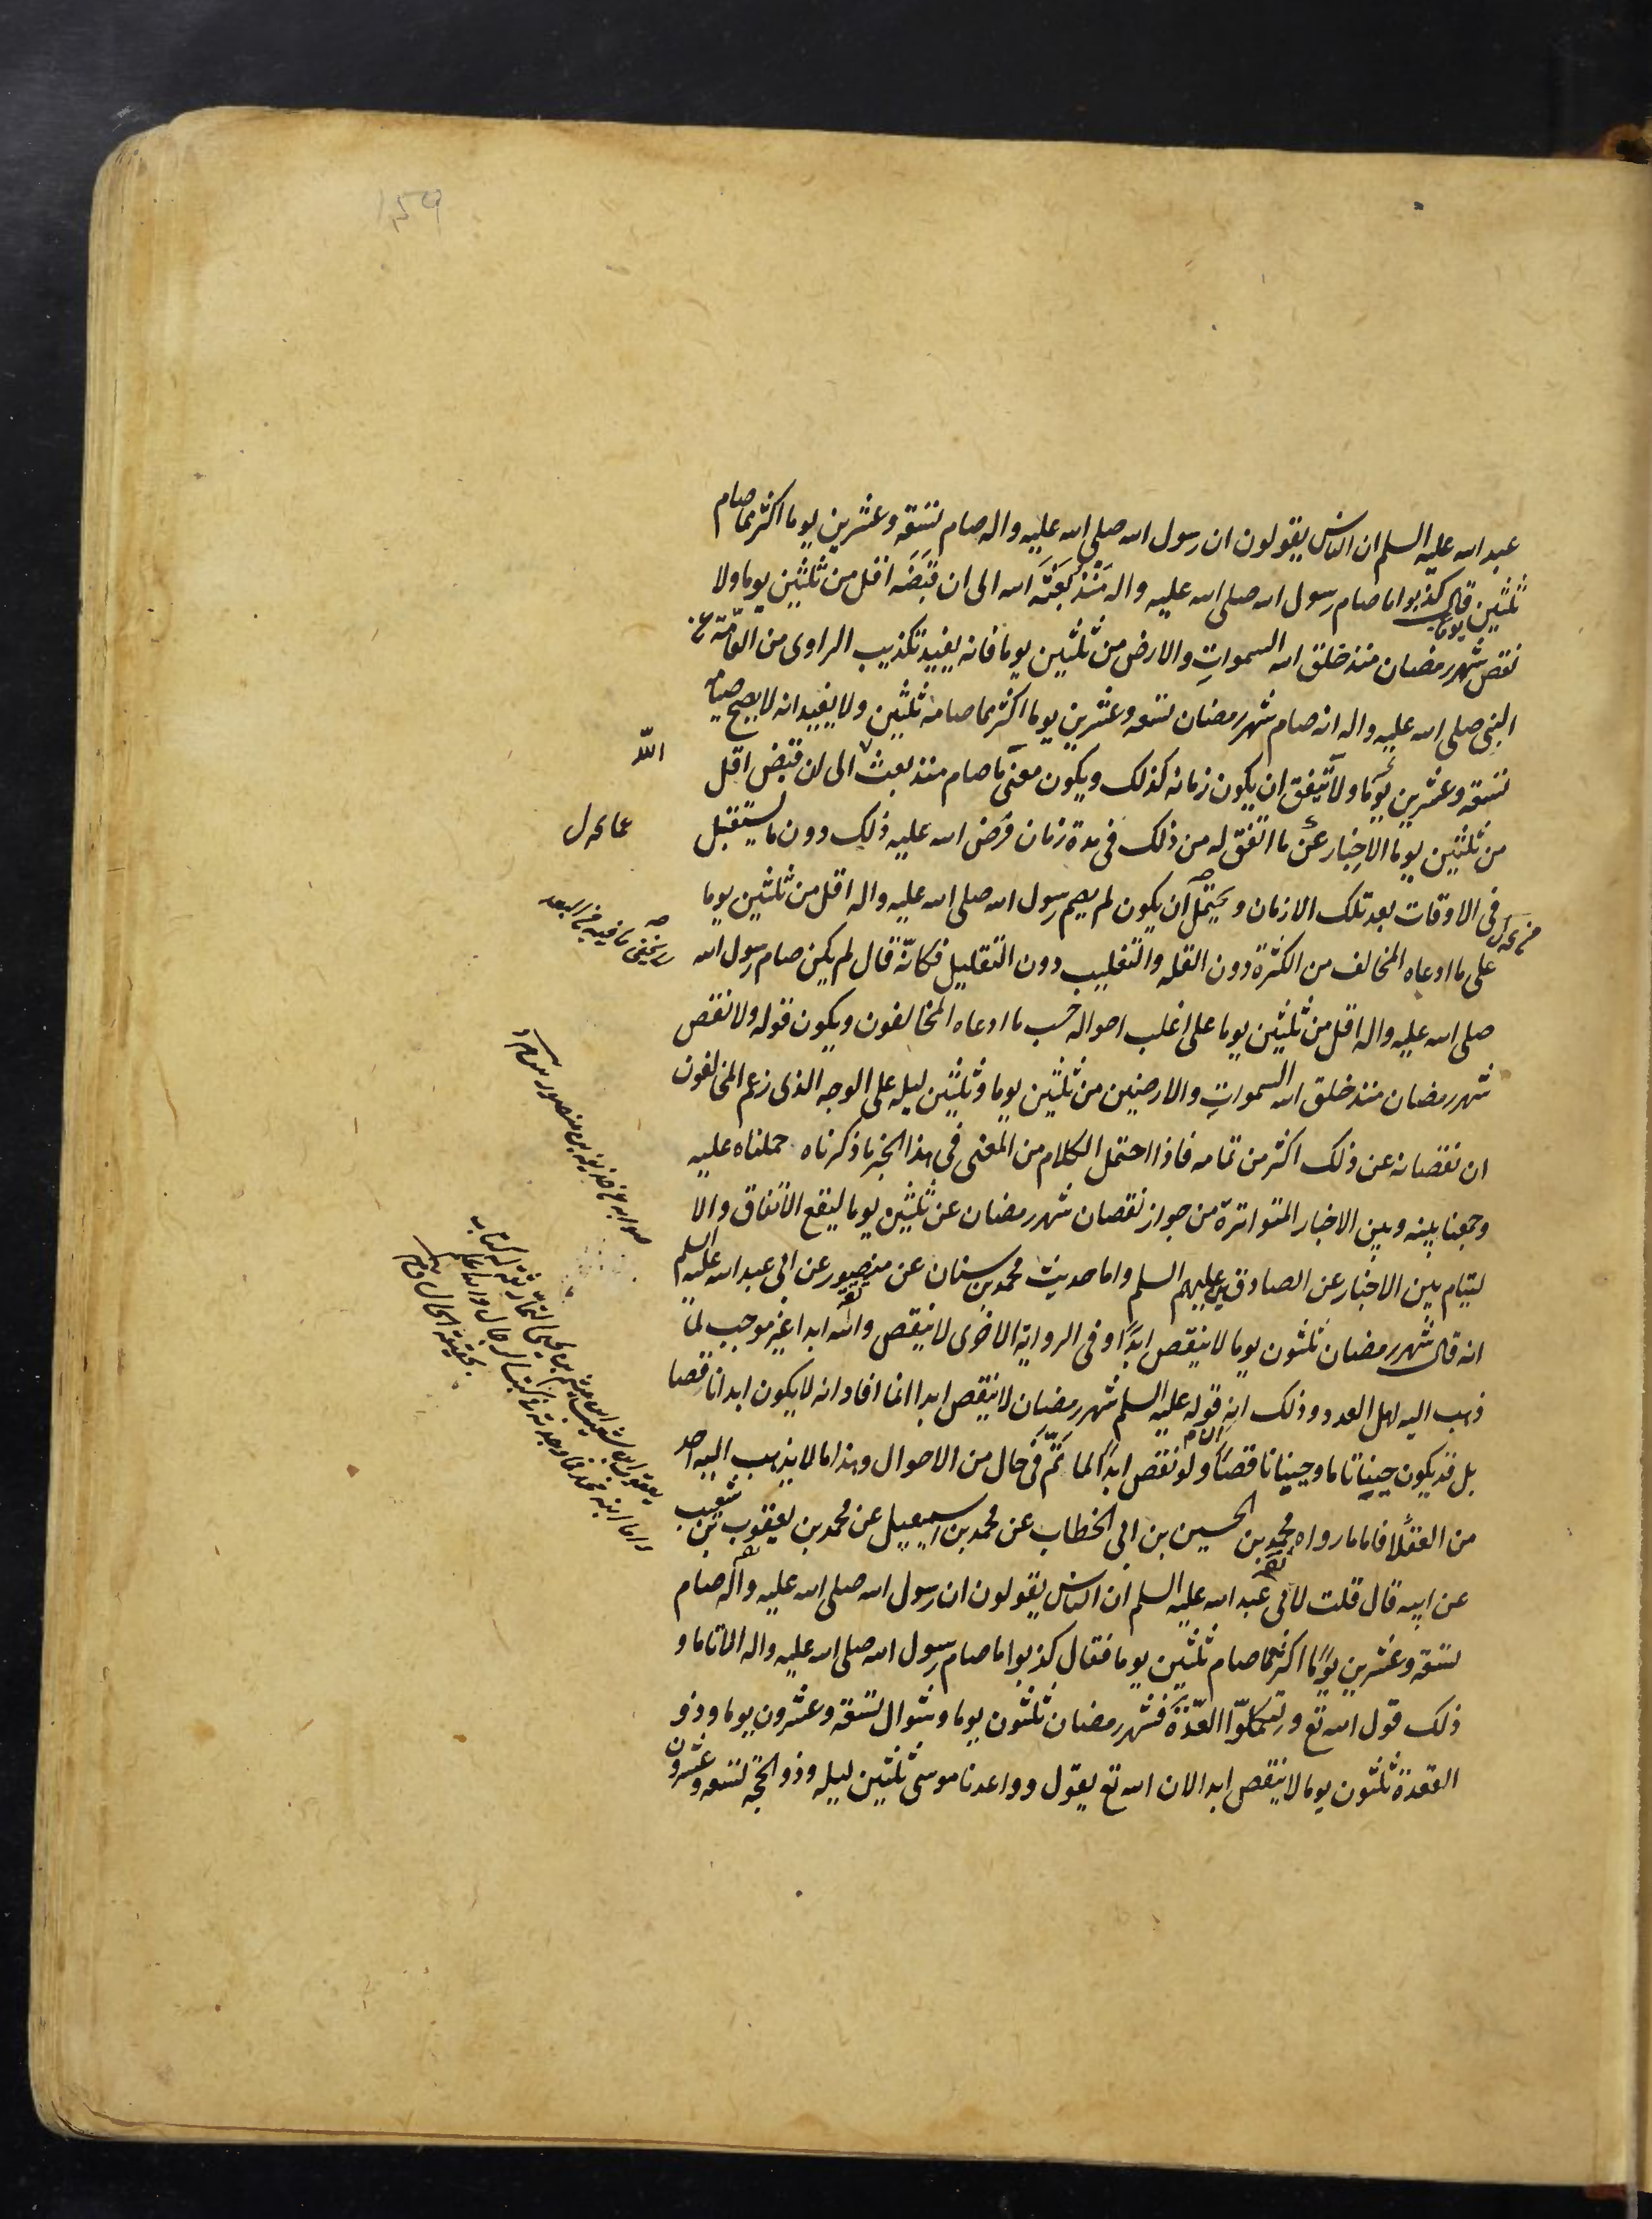 ١٥٩
عبد الله عليه السلم ان الناس يقولون ان رسول الله صلى الله عليه واله صام تسعة وعشرين يوما اكثر مما صام
ثلثين يوما قال كذبوا ما صام رسول الله صلى الله عليه واله منذ بعثه الله الى ان قبضه اقل من ثلثين يوما ولا
نقص شهر رمضان منذ خلق الله السموات والارض من ثلثين يوما فانه يفيد تكذيب الراوى من العامّة عن
النبى صلى الله عليه واله انه صام شهر رمضان تسعه وعشرين يوما اكثر مما صامه ثلثين ولا يفيد انه لا يصح صيام
تسعة وعشرين يوما ولا يتفق ان يكون زمانه كذلك ويكون معنى ما صام منذ بعث الى ان قبض اقل
من ثلثين يوما الاخبار عن ما اتفق له من ذلك فى مدة زمان فرض الله عليه ذلك دون ما يستقبل
فى الاوقات بعد تلك الازمان ويحتمل ان يكون لم يصم رسول الله صلى الله عليه واله اقل من ثلثين يوما
على ما ادعاه المخالف من الكثرة دون القله والتغليب دون التقليل فكانّه قال لم يكن صام رسول الله
صلى الله عليه واله اقل من ثلثين يوما على اغلب احواله حسب ما ادعاه المخالفون ويكون قوله ولا نقص
شهر رمضان منذ خلق الله السموات والارضين من ثلثين يوما وثلثين ليله على الوجه الذى زعم المخالفون
ان نقصانه عن ذلك اكثر من تمامه فاذا احتمل الكلام من المعنى فى هذا الخبر ما ذكرناه حملناه عليه
وجمعنا بينه وبين الاخبار المتواترة من جواز نقصان شهر رمضان عن ثلثين يوما ليقع الاتفاق والا
لتيام بين الاخبار عن الصادقين عليهم السلم واما حديث محمد بن سنان عن منصور عن ابى عبد الله عليه السلم
انه قال شهر رمضان ثلثون يوما لا ينقص ابدًا وفى الرواية الاخرى لا ينقص والله ابدا غير موجب لما
ذهب اليه اهل العدد وذلك ان قوله عليه السلم شهر رمضان لا ينقص ابدا انما افاد انه لا يكون ابدا ناقصا
بل قد يكون حينا تاما وحينا ناقصًا ولو نقص ابدًا لما تمّ فى حال من الاحوال وهذا ما لا يذهب اليه احد
من العقلا فاما ما رواه محمد بن الحسين بن ابى الخطاب عن محمد بن اسمعيل عن محمد بن يعقوب بن شعيب
عن ابيه قال قلت لابى عبد الله عليه السلم ان الناس يقولون ان رسول الله صلى الله عليه واله صام
تسعة وعشرين يومًا اكثر مما صام ثلثين يوما فقال كذبوا ما صام رسول الله صلى الله عليه واله الا تاما و
ذلك قول الله تع ولتكملوا العدّة فشهر رمضان ثلثون يوما وشوال تسعة وعشرون يوما وذو
القعدة ثلثون يوما لا ينقص ابدا لان الله تع يقول وواعدنا موسى ثلثين ليله وذو الحجّة تسعه وعشرون
اللّه